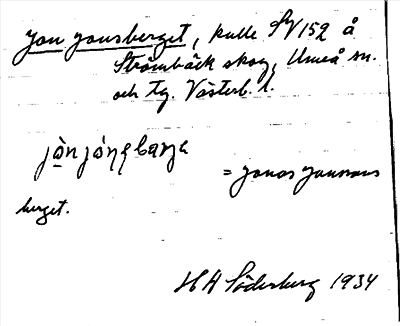 Jon Jonsberget, kulle SV 152 å
Strömbäck skog, Umeå sn.
och tg. Västerb. l.
= Jonas Jonsons
berget.
H A Söderberg 1934